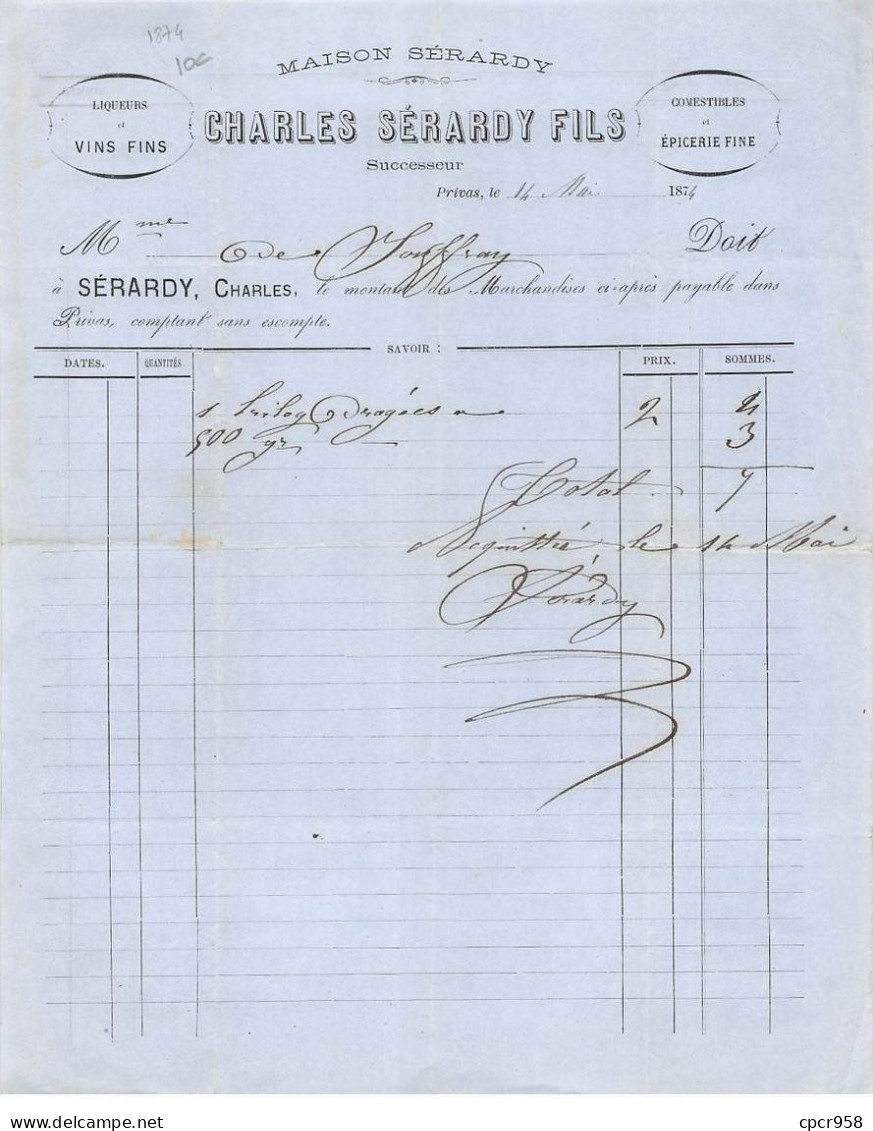 1874
10€
MAISON SÉRARDY
LIQUEURS
et
VINS FINS
CHARLES SÉRARDY FILS
COMESTIBLES
et
ÉPICERIE FINE
Successeur
Privas, le 14 Mai 1874
Mme de Jouffray Doit
à SÉRARDY, CHARLES, le montant des Marchandises ci-après payable dans
Privas, comptant sans escompte.
SAVOIR :
DATES. QUANTITÉS PRIX. SOMMES.
1 Dragées 2 4
500 gr 3
Total 7
Acquitté, le 14 Mai
Sérardy
delcampe.net
cpcr958